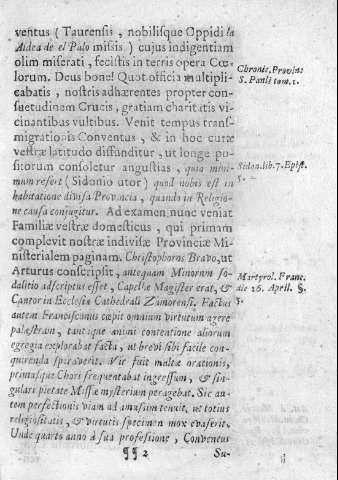 ventus (Taurensis, nobilisque Oppidi la
Aldea de el Palo missis) cujus indigentiam
olim miserati, fecistis in terris opera Cœ-
lorum. Deus bone! Quot officia multipli-
cabatis, nostris adhærentes propter con-
suetudinem Crucis, gratiam charitatis vi-
cinantibus vultibus. Venit tempus trans-
migrationis Conventus, & in hoc curæ
vestræ latitudo diffunditur, ut longe po-
sitorum consoletur angustias, quia mini-
mum refert (Sidonio utor) quod nobis est in
habitatione divisa Provincia, quando in Religio-
ne causa conjugitur. Ad examen nunc veniat
Familiæ vestræ domesticus, qui primam
complevit nostræ indivisæ Provinciæ Mi-
nisterialem paginam. Christophorus Bravo, ut
Arturus conscripsit, antequam Minorum so-
dalitio adscriptus esset, Capellæ Magister erat, &
Cantor in Ecclesia Cathedrali Zamorensi. Factus
autem Franciscanus cœpit omnium virtutum agere
palæstram, tantaque animi contentione aliorum
egregia explorabat facta, ut brevi sibi facile con-
quirenda speraverit. Vir fuit multæ orationis,
primusque Chori frequentabat ingressum, & sin-
gulari pietate Missæ mysterium peragebat. Sic au-
tem perfectionis viam ad amussim tenuit, ut totius
religiositatis, & virtutis specimen mox evaserit.
Unde quarto anno à sua professione, Conventus
¶¶ 2 Su-
Chronic. Provinc.
S. Pauli tom. 1.
Sidon. lib. 7. Epist.
Martyrol. Franc.
die 26. April. §.
3.